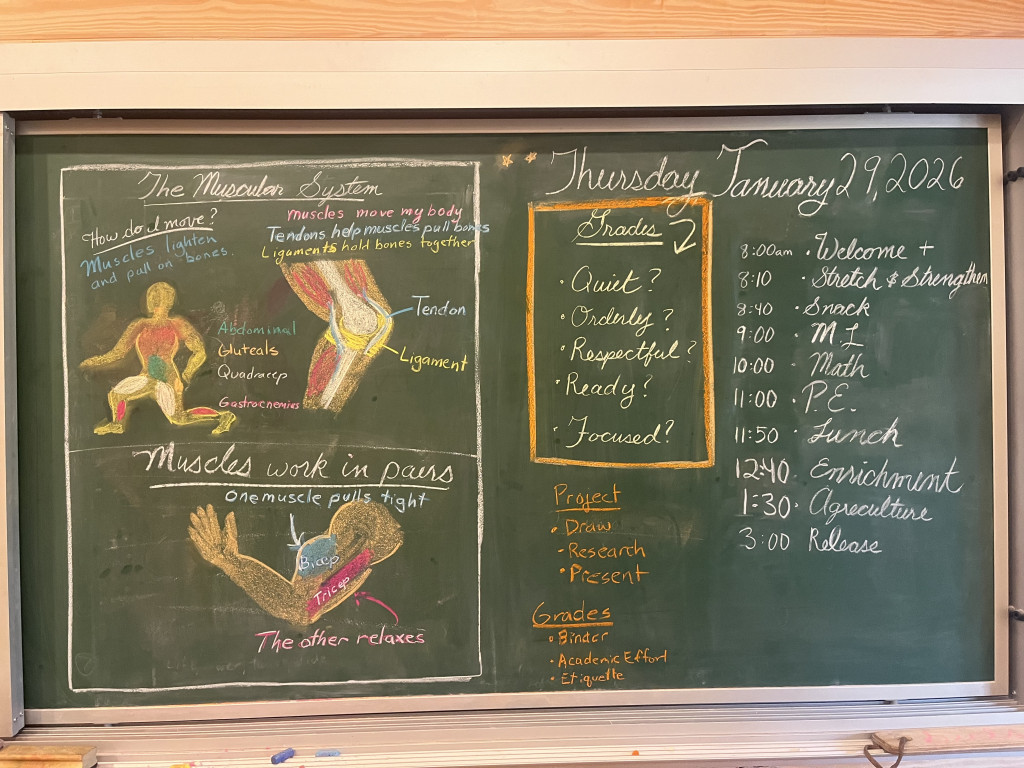 The Muscular System
How do I move?
Muscles tighten
and pull on bones.
muscles move my body
Tendons help muscles pull bones
Ligaments hold bones together
Tendon
Ligament
Abdominal
Gluteals
Quadracep
Gastrocnemius
Muscles work in pairs
One muscle pulls tight
Bicep
Tricep
The other relaxes
Thursday January 29, 2026
Grades
• Quiet?
• Orderly?
• Respectful?
• Ready?
• Focused?
Project
• Draw
• Research
• Present
Grades
• Binder
• Academic Effort
• Etiquette
8:00am • Welcome +
8:10 • Stretch & Strengthen
8:40 • Snack
9:00 • ML
10:00 • Math
11:00 • P.E.
11:50 • Lunch
12:40 • Enrichment
1:30 • Agreculture
3:00 Release